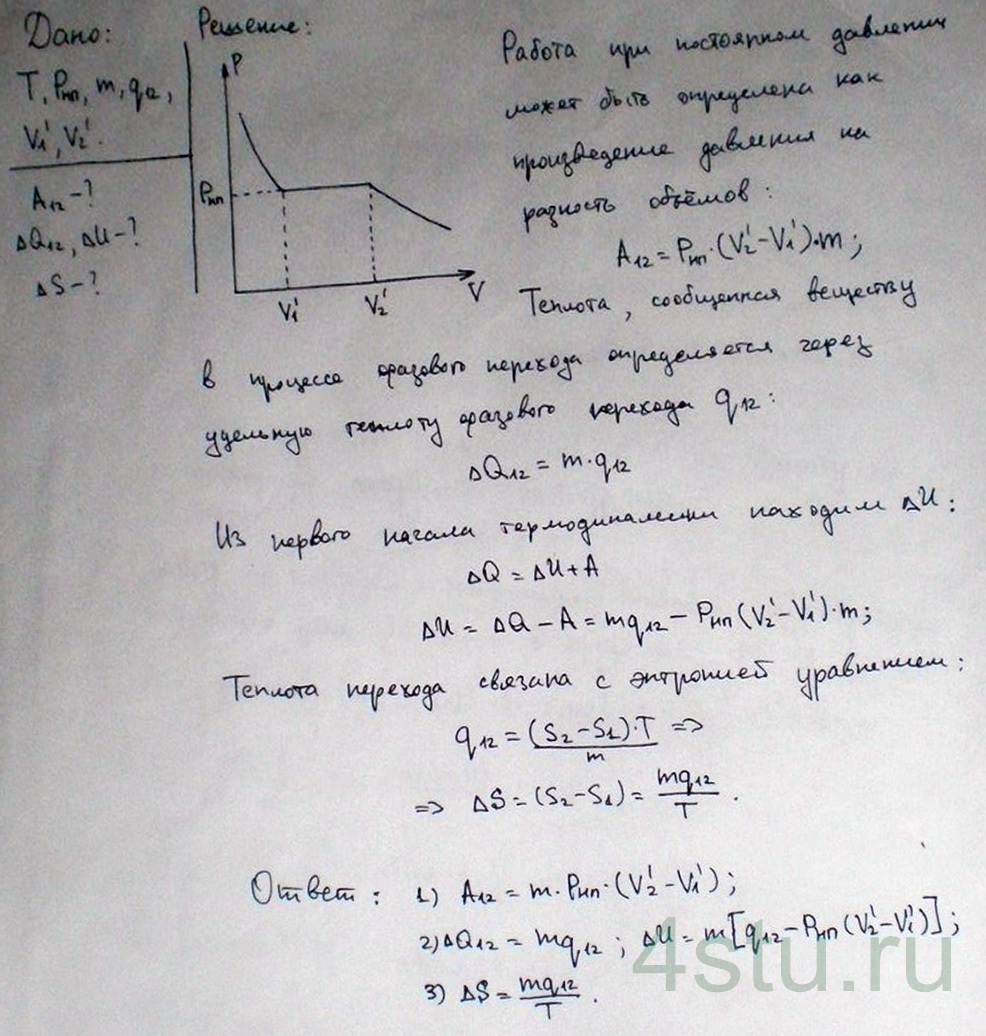 Дано:
T, Pнп, m, q12,
V1', V2'.
A12 - ?
ΔQ12, ΔU - ?
ΔS - ?
Решение:
P
Pнп
V1'
V2'
V
Работа при постоянном давлении
может быть определена как
произведение давления на
разность объёмов:
A12 = Pнп·(V2'-V1')·m;
Теплота, сообщенная веществу
в процессе фазового перехода определяется через
удельную теплоту фазового перехода q12:
ΔQ12 = m·q12
Из первого начала термодинамики находим ΔU:
ΔQ = ΔU + A
ΔU = ΔQ - A = mq12 - Pнп(V2'-V1')·m;
Теплота перехода связана с энтропией уравнением:
q12 = (S2-S1)·T/m =>
=> ΔS = (S2-S1) = mq12/T.
Ответ: 1) A12 = m·Pнп·(V2'-V1');
2) ΔQ12 = mq12; ΔU = m[q12-Pнп(V2'-V1')];
3) ΔS = mq12/T.
4stu.ru